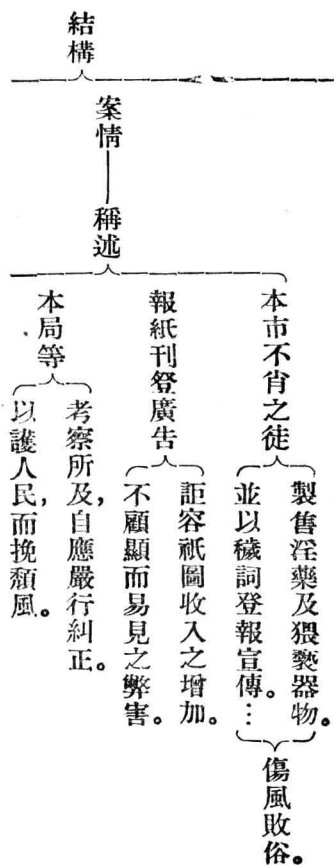 結構
案情——稱述
本市不肖之徒
製售淫藥及猥褻器物。
並以穢詞登報宣傳。…
傷風敗俗。
報紙刊登廣告
詎容祇圖收入之增加。
不顧顯而易見之弊害。
本局等
考察所及,自應嚴行糾正。
以護人民,而挽頹風。